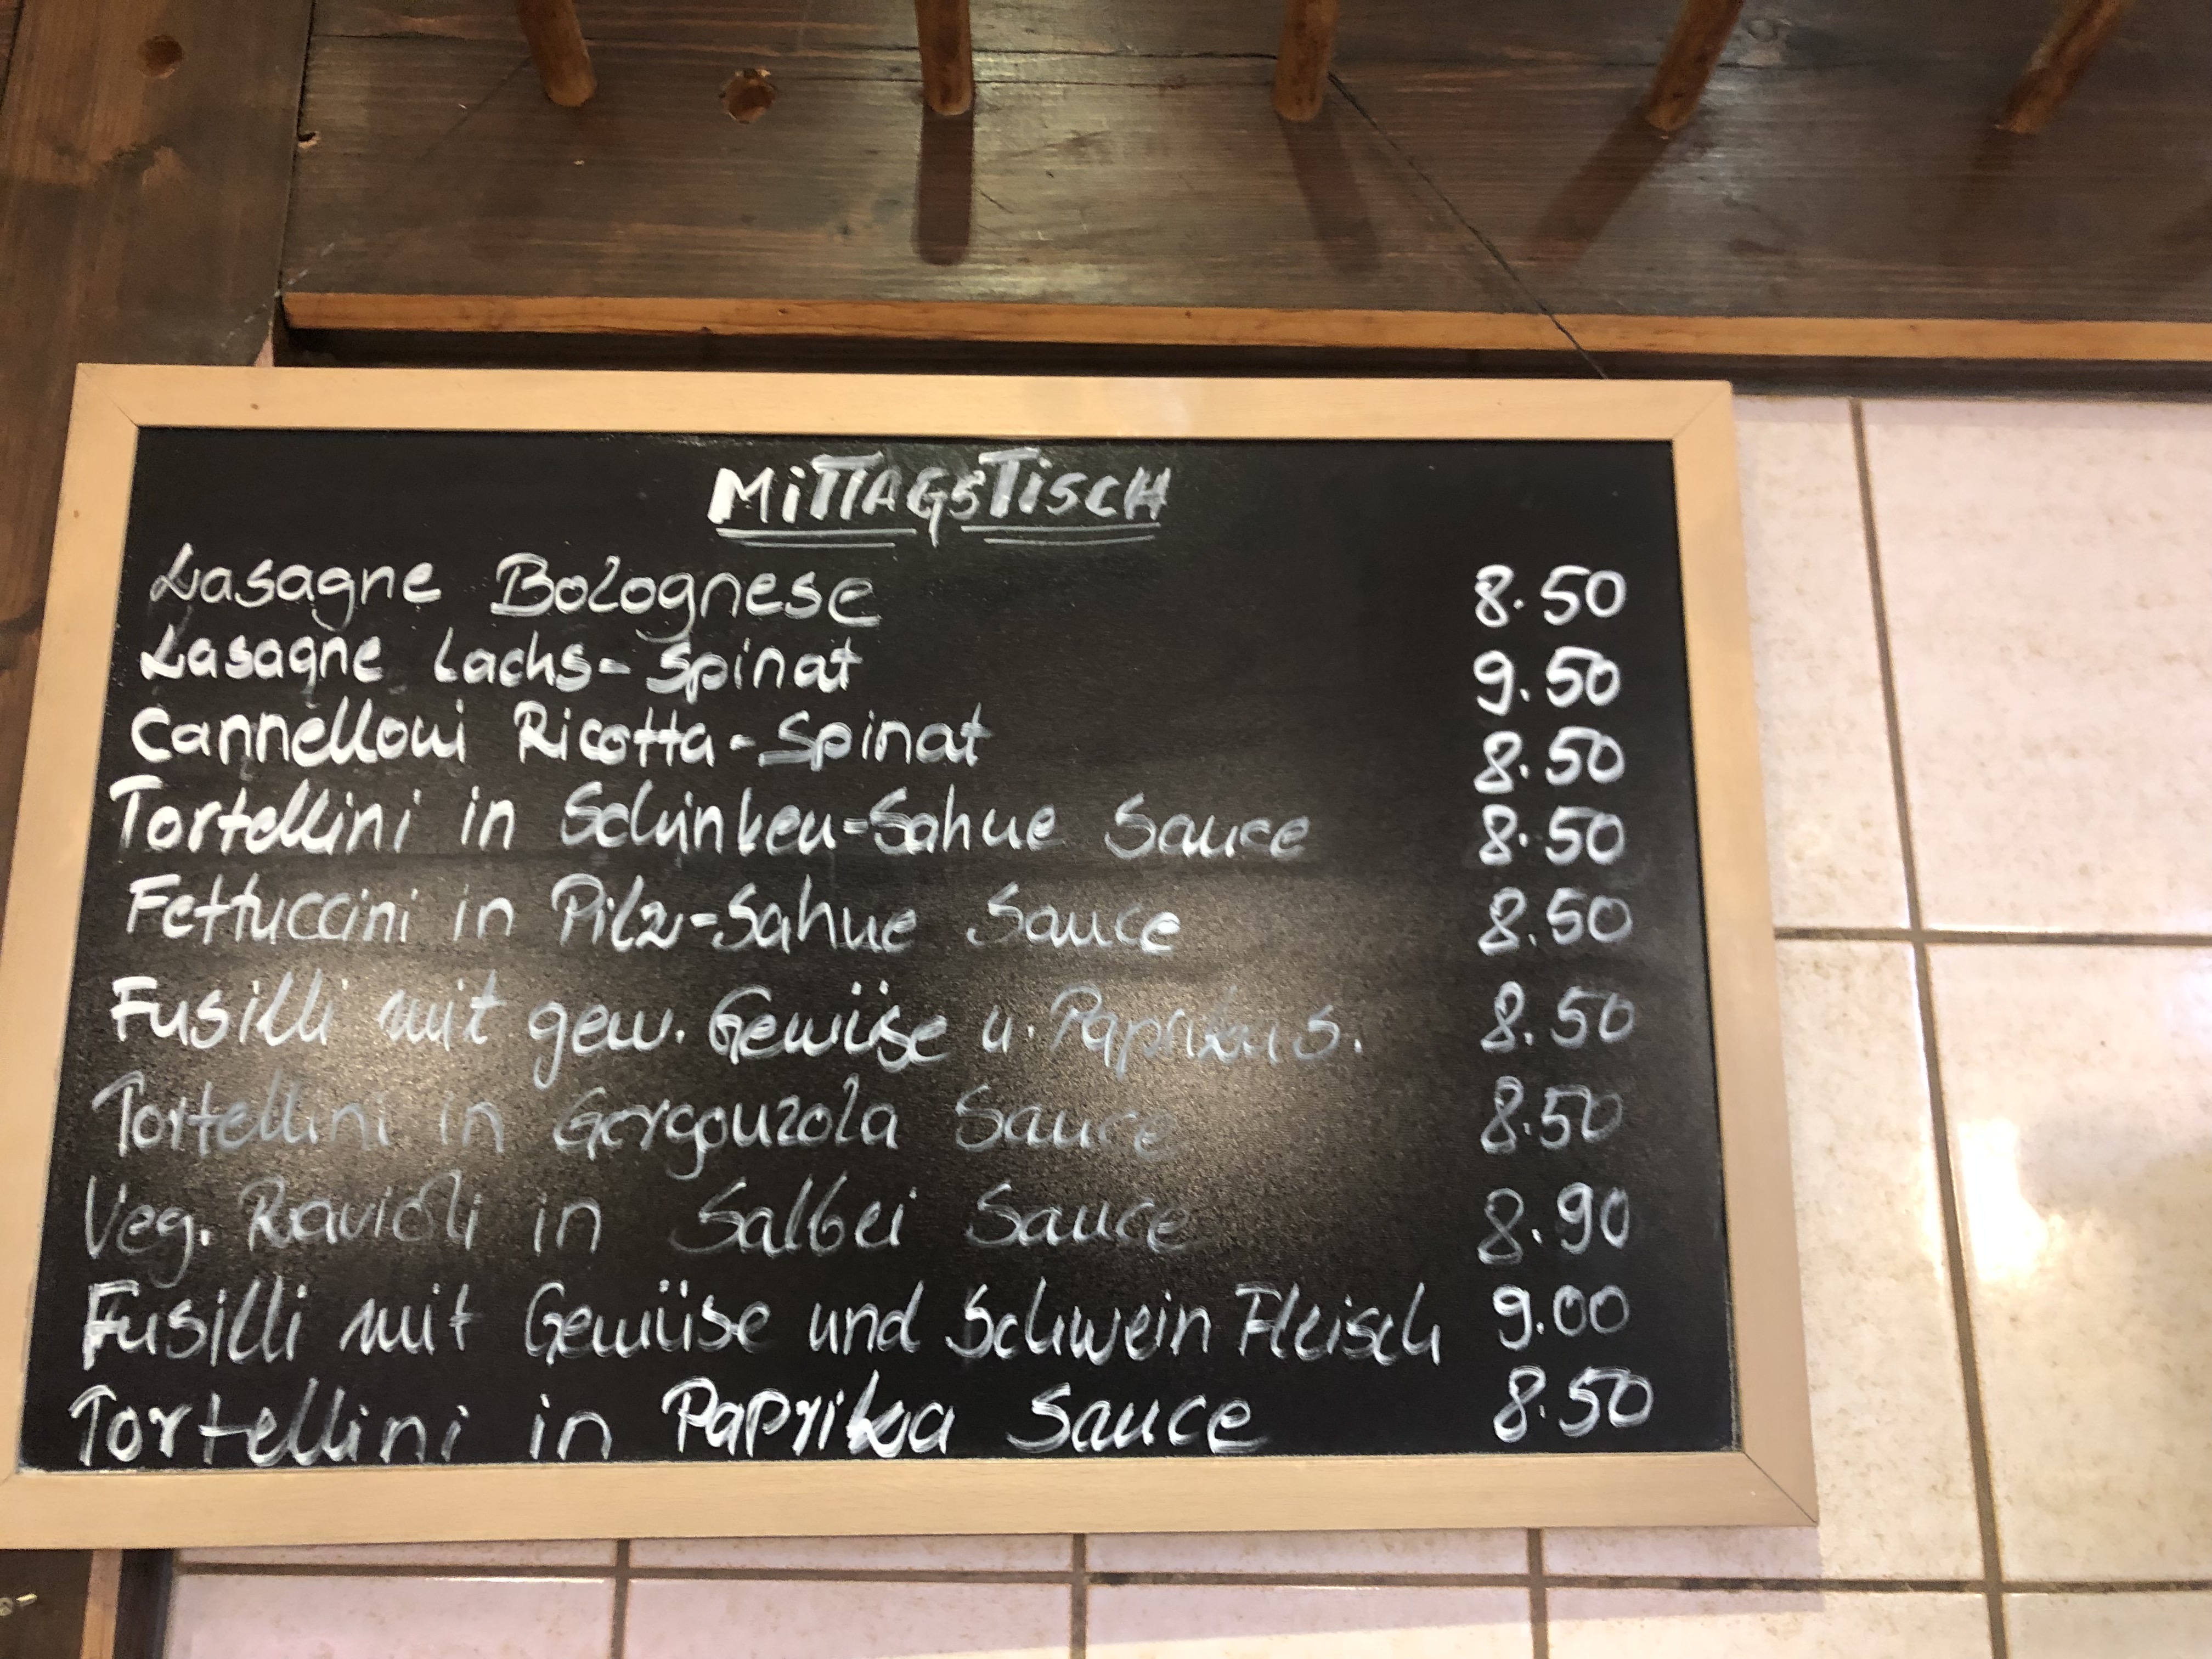 MITTAGSTISCH
Lasagne Bolognese 8.50
Lasagne Lachs-Spinat 9.50
Cannelloni Ricotta-Spinat 8.50
Tortellini in Schinken-Sahne Sauce 8.50
Fettuccini in Pilz-Sahne Sauce 8.50
Fusilli mit gem. Gemüse u. Paprika S. 8.50
Tortellini in Gorgonzola Sauce 8.50
Veg. Ravioli in Salbei Sauce 8.90
Fusilli mit Gemüse und Schwein Fleisch 9.00
Tortellini in Paprika Sauce 8.50